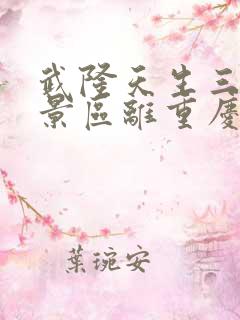 武隆天生三
景區離重慶
葉琬安